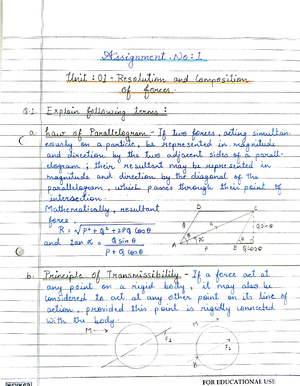 Assignment No: 1
Unit : 01 - Resolution and Composition
of forces.
Q.1. Explain following terms :
a. Law of Parallelogram - If two forces, acting simultan
eously on a particle, be represented in magnitude
and direction by the two adjacent sides of a parall-
elogram ; their resultant may be represented in
magnitude and direction by the diagonal of the
parallelogram, which passes through their point of
intersection.
Mathematically, resultant
force,
R = √P² + Q² + 2PQ Cosθ
and tan α = Q sin θ
P + Q Cosθ
D
C
R
Q
α
θ
A
P
B
E
QCosθ
b. Principle of Transmissibility - If a force act at
any point on a rigid body, it may also be
considered to act at any other point on its line of
action, provided this point is rigidly connected
with the body.
M
F₂
M
F₂
B
FOR EDUCATIONAL USE